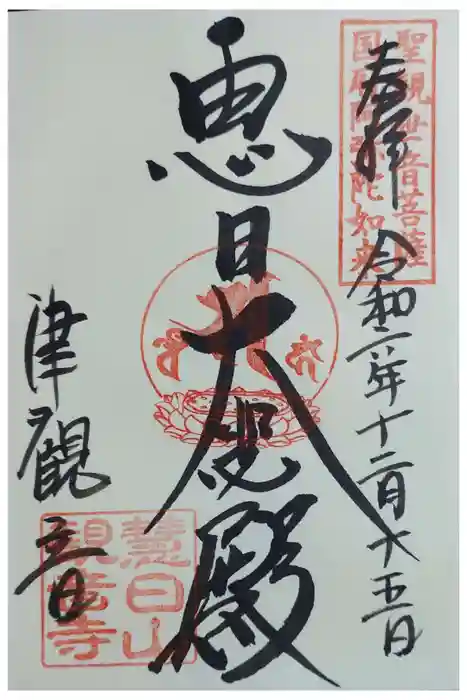 奉拝
令和二年十二月十五日
聖観世音菩薩
国府阿弥陀如来
恵日大悲殿
津觀音
慧日山
観音寺